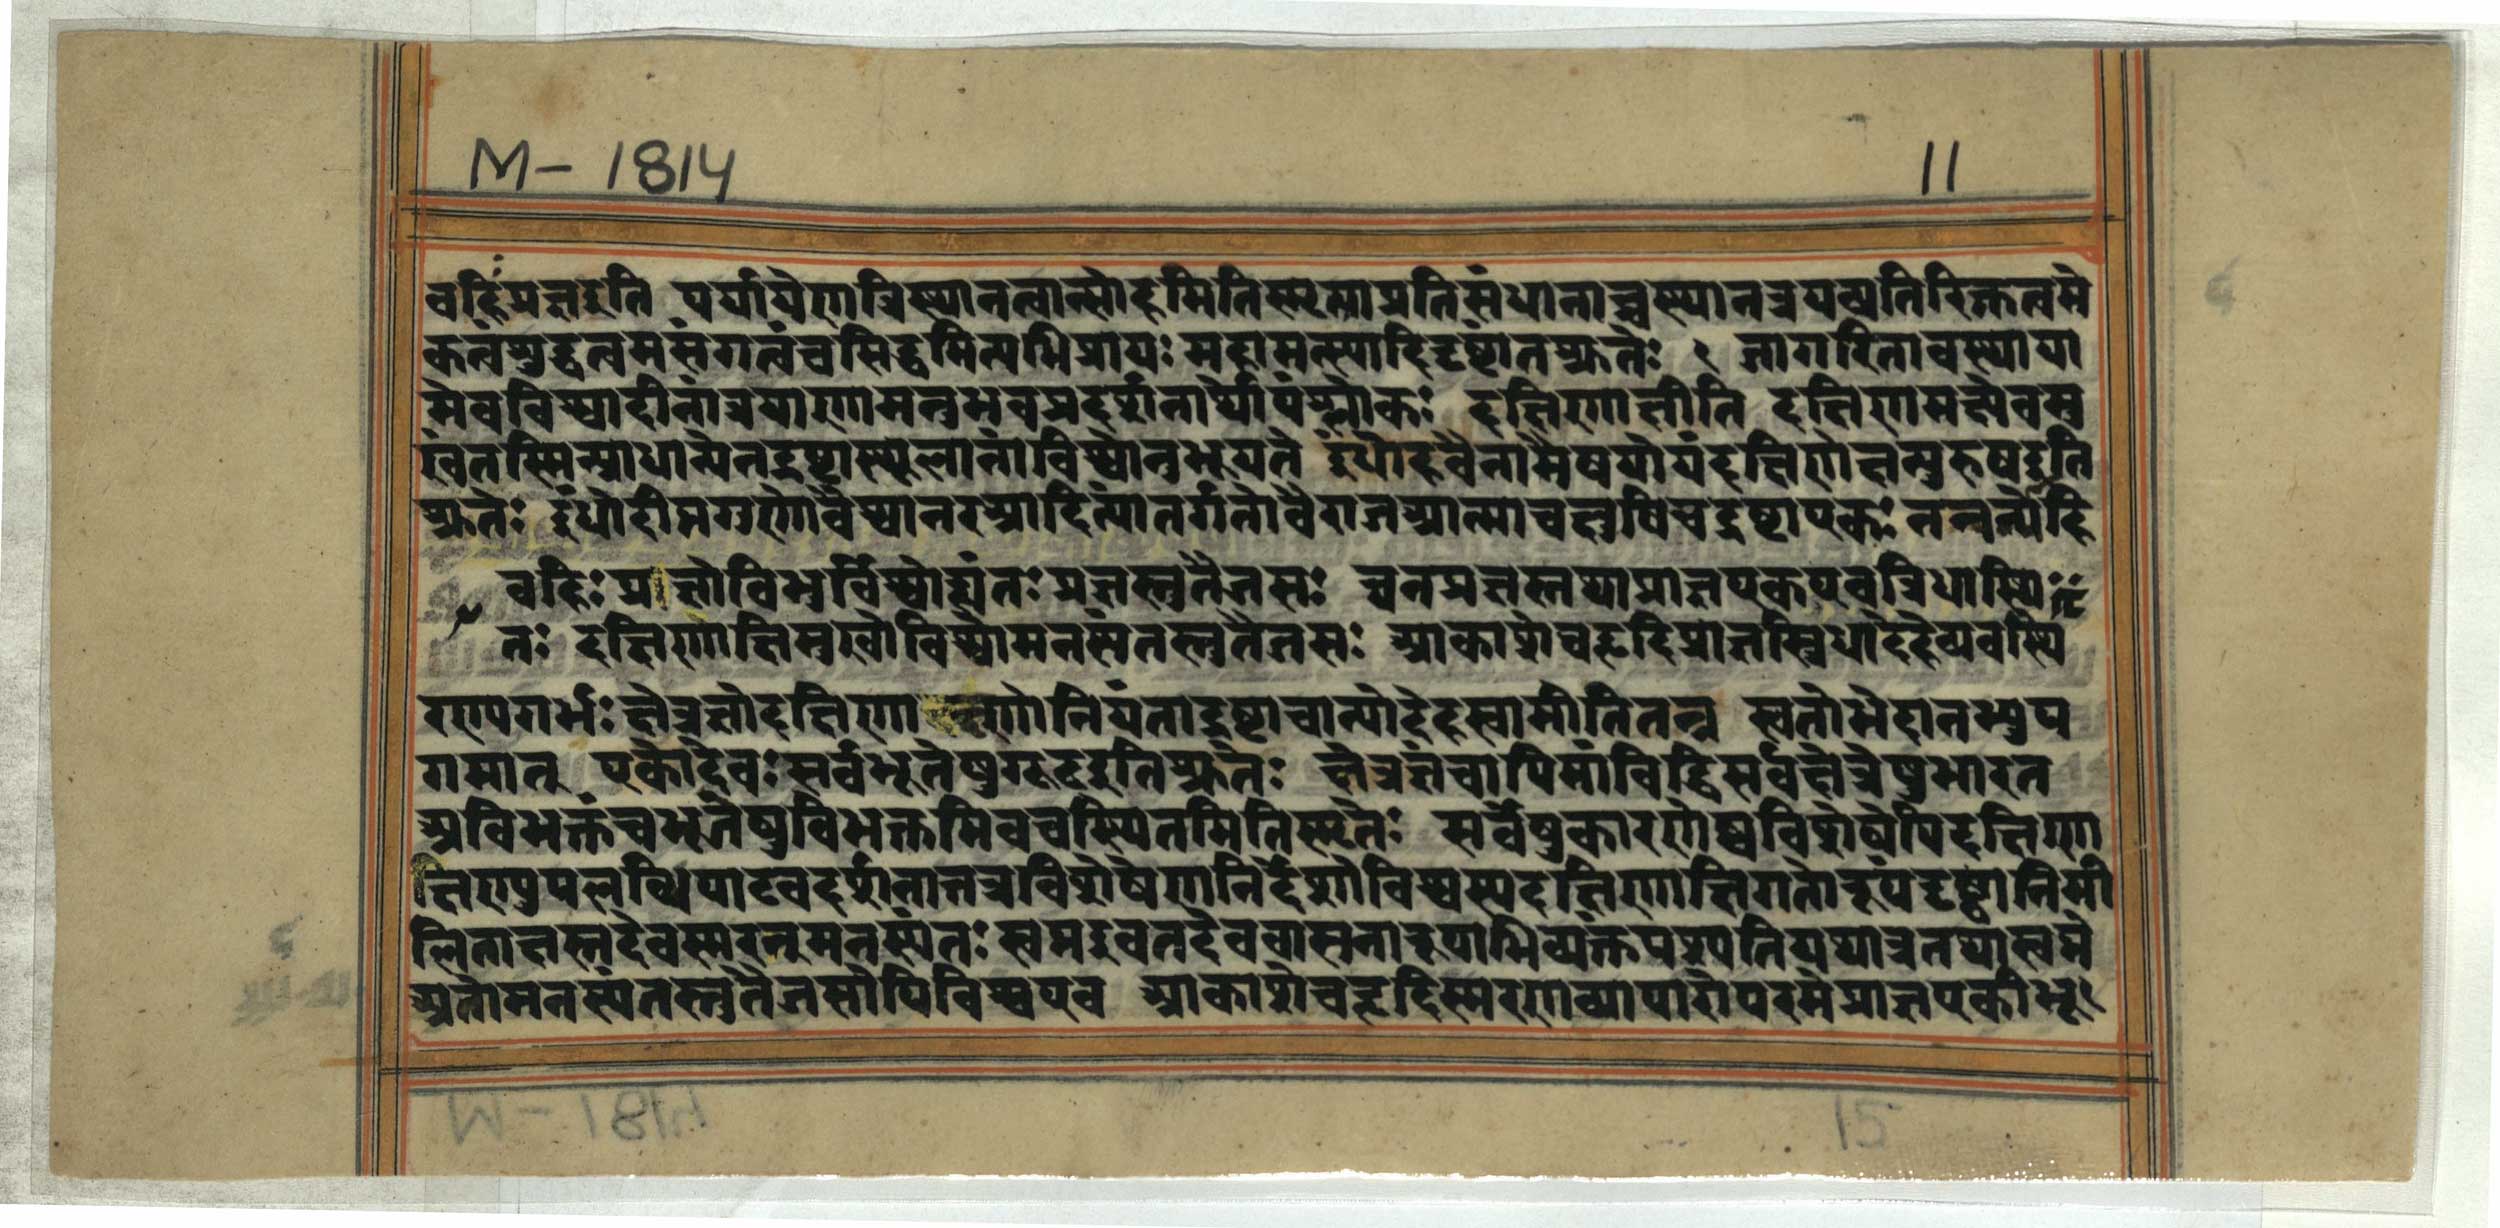 M-1814
11
बहिःप्रज्ञइति पर्यायेणात्रिस्थानत्वात्सोहमितिस्मृत्याप्रतिसंधानाच्चस्थानत्रयव्यतिरिक्तत्वमे
कत्वंशुद्धत्वमसंगत्वंचसिद्धमित्यभिप्रायः महामत्स्यादिदृष्टांतश्रुतेः १ जागरितावस्थाया
मेवविश्वादीनांत्रयाणामनुभवप्रदर्शनार्थोयंश्लोकः दक्षिणाक्षीति दक्षिणमक्ष्येवमु
खंतस्मिन्प्राधान्येनद्रष्टास्थूलानांविश्वोनुभूयते इंधोहवैनामैषयोयंदक्षिणेक्षन्पुरुषइति
श्रुतेः इंधोदीप्तगुणोवैश्वानरआदित्यांतर्गतोवैराजआत्माचक्षुषिचद्रष्टाएकः नन्वन्योहि
बहिः प्राज्ञोविभुर्विश्वोह्यंतः प्रज्ञस्तुतैजसः घनप्रज्ञस्तथाप्राज्ञएकएवत्रिधास्थि
तः दक्षिणाक्षिमुखेविश्वोमनस्यंतस्तुतैजसः आकाशेचहृदिप्राज्ञस्त्रिधादेहेव्यवस्थि
रण्यगर्भः क्षेत्रज्ञोदक्षिणा क्षणोनियंताद्रष्टाचान्योदेहस्वामीतितन्न स्वतोभेदानभ्युप
गमात् एकोदेवः सर्वभूतेषुगूढइतिश्रुतेः क्षेत्रज्ञंचापिमांविद्धिसर्वक्षेत्रेषुभारत
अविभक्तंचभूतेषुविभक्तमिवचस्थितमितिस्मृतेः सर्वेषुकारणेष्वविशेषेपिदक्षिणा
क्षिण्युपलब्धिपाटवदर्शनात्तत्रविशेषेणनिर्देशोविश्वस्यदक्षिणाक्षिगतोरूपंदृष्ट्वानिमी
लिताक्षस्तदेवस्मरन्मनस्यंतः स्वप्नइवतदेववासनारूपाभिव्यक्तंपश्यतियथात्रतथास्वप्ने
अतोमनस्यंतस्तुतैजसोपिविश्वएव आकाशेचहृदिस्मरणाव्यापारोपरमेप्राज्ञएकीभू